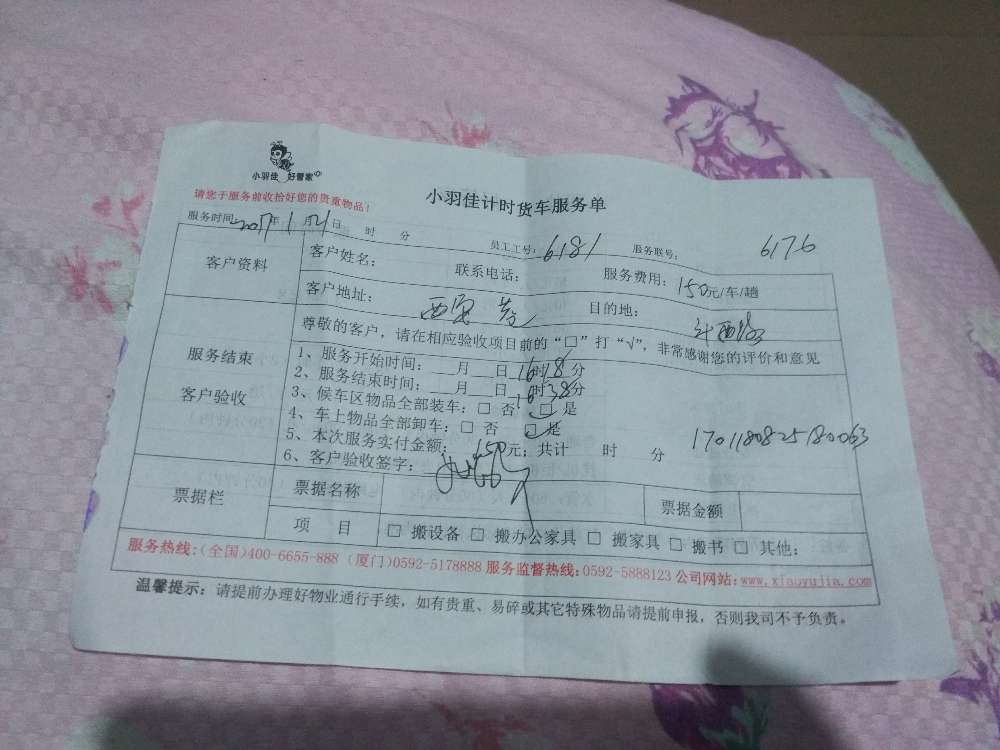 小羽佳 好管家
请您于服务前收拾好您的贵重物品!
小羽佳计时货车服务单
服务时间 2017年1月21日 时 分 员工工号: 6181 服务联号: 6176
客户资料
客户姓名: 联系电话: 服务费用: 150元/车/趟
客户地址: 目的地:
服务结束
客户验收
尊敬的客户,请在相应验收项目前的“□”打“√”,非常感谢您的评价和意见
1、服务开始时间: 月 日 16时18分
2、服务结束时间: 月 日 16时38分
3、候车区物品全部装车: □ 否 □ 是
4、车上物品全部卸车: □ 否 □ 是
5、本次服务实付金额: 150元; 共计 时 分
1701180825180063
6、客户验收签字:
票据栏
票据名称 票据金额
项 目 □ 搬设备 □ 搬办公家具 □ 搬家具 □ 搬书 □ 其他:
服务热线:(全国)400-6655-888 (厦门)0592-5178888 服务监督热线:0592-5888123 公司网站:www.xiaoyujia.com
温馨提示: 请提前办理好物业通行手续,如有贵重、易碎或其它特殊物品请提前申报,否则我司不予负责。